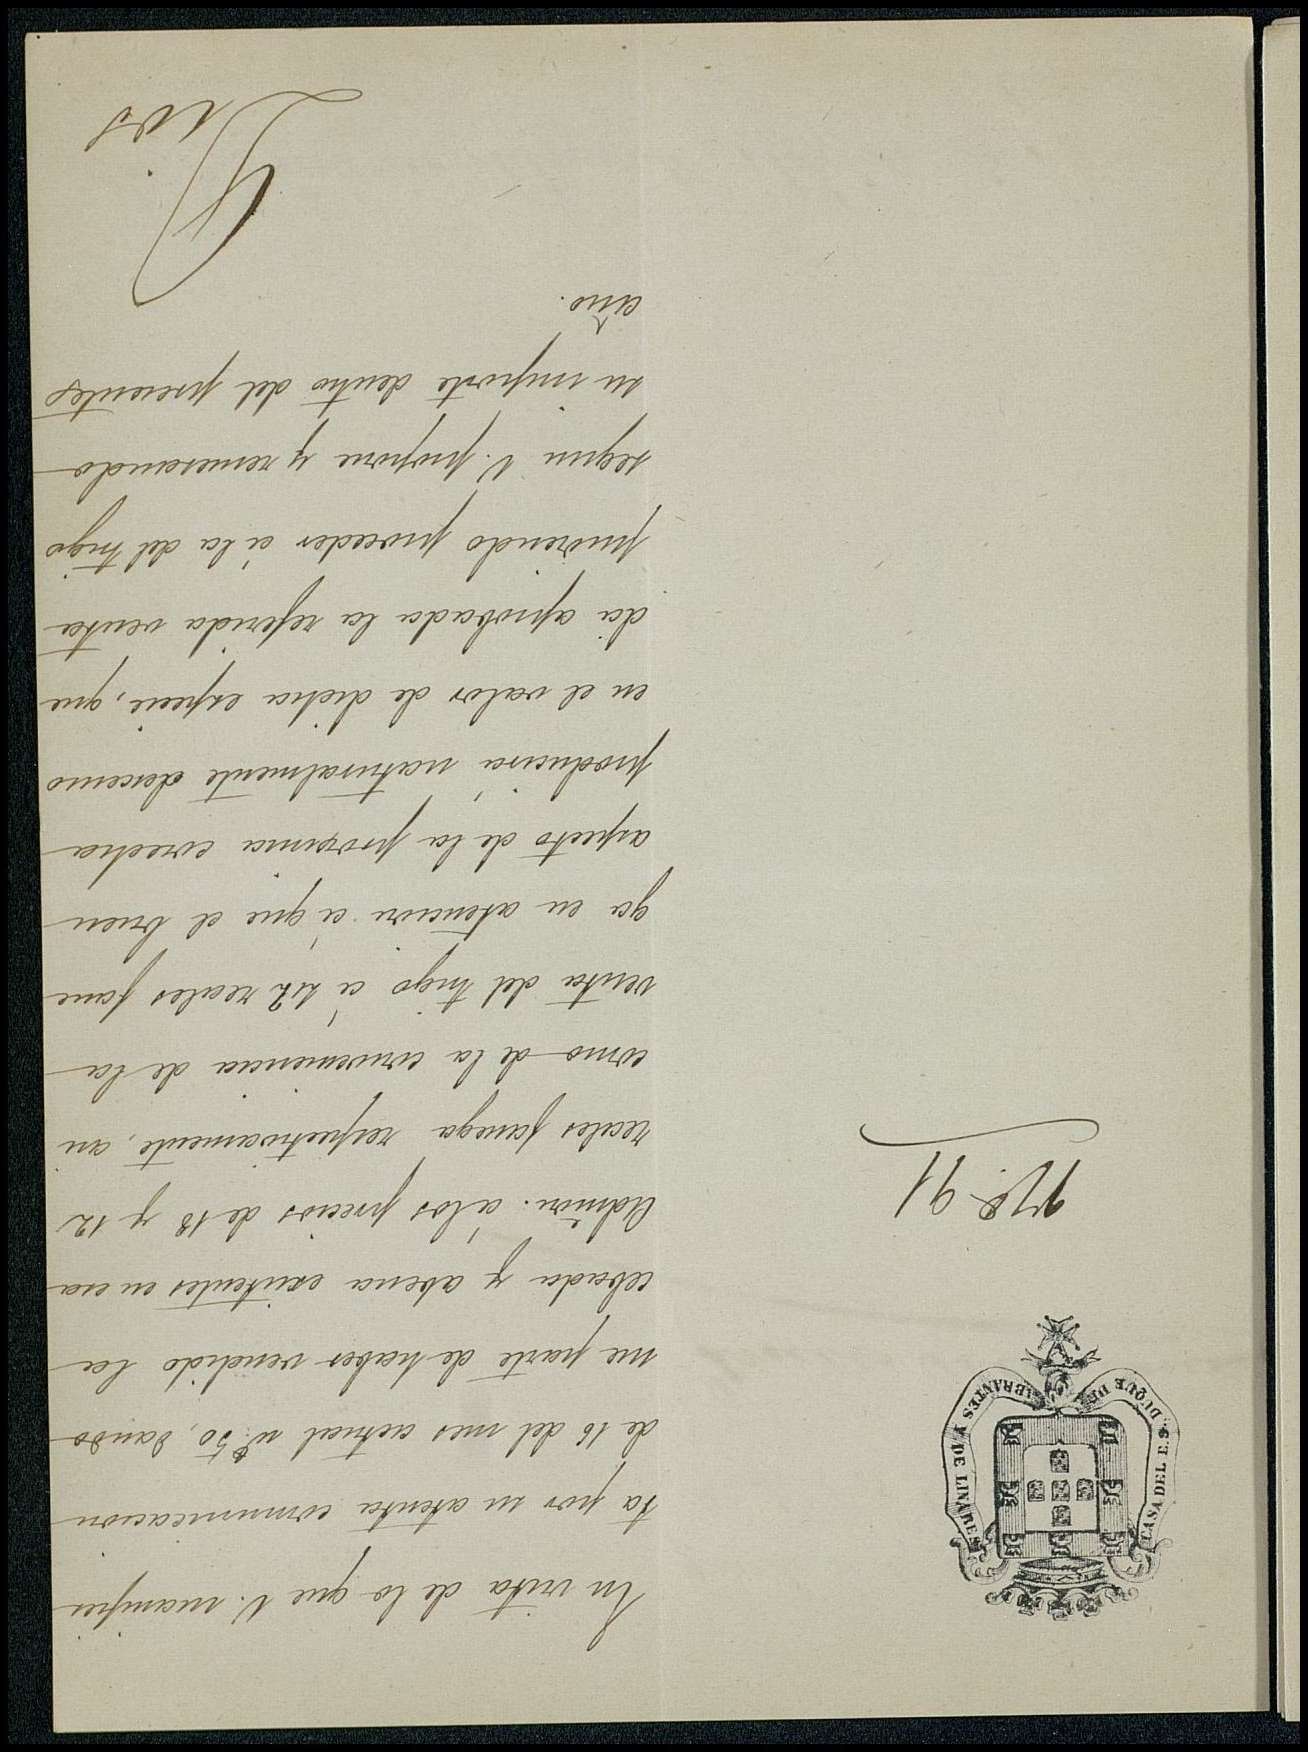 CASA DEL E.S. DUQUE DE ABRANTES Y DE LINARES
En vista de lo que V. manifies
ta por su atenta comunicacion
de 16 del mes actual nº 50, dando
me parte de haber vendido la
cebada y abena existentes en esa
Admón. á los precios de 18 y 12
reales fanega respectivamente, asi
como de la conveniencia de la
venta del trigo á 42 reales fane
ga en atencion á que el buen
aspecto de la proxima cosecha
producirá, naturalmente descenso
en el valor de dicha especie, que
da aprobada la referida venta
pudiendo proceder á la del trigo
segun V. propone y remesando
su importe dentro del presente
año.
Dios